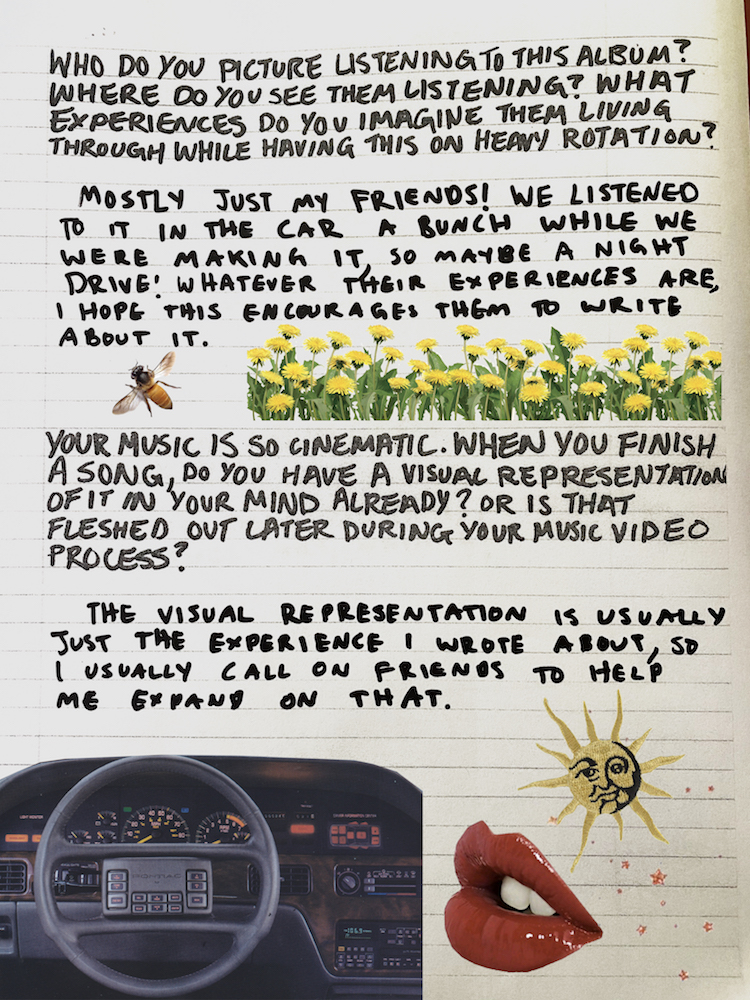 WHO DO YOU PICTURE LISTENING TO THIS ALBUM?
WHERE DO YOU SEE THEM LISTENING? WHAT
EXPERIENCES DO YOU IMAGINE THEM LIVING
THROUGH WHILE HAVING THIS ON HEAVY ROTATION?
MOSTLY JUST MY FRIENDS! WE LISTENED
TO IT IN THE CAR A BUNCH WHILE WE
WERE MAKING IT, SO MAYBE A NIGHT
DRIVE! WHATEVER THEIR EXPERIENCES ARE,
I HOPE THIS ENCOURAGES THEM TO WRITE
ABOUT IT.
YOUR MUSIC IS SO CINEMATIC. WHEN YOU FINISH
A SONG, DO YOU HAVE A VISUAL REPRESENTATION
OF IT IN YOUR MIND ALREADY? OR IS THAT
FLESHED OUT LATER DURING YOUR MUSIC VIDEO
PROCESS?
THE VISUAL REPRESENTATION IS USUALLY
JUST THE EXPERIENCE I WROTE ABOUT, SO
I USUALLY CALL ON FRIENDS TO HELP
ME EXPAND ON THAT.
PONTIAC